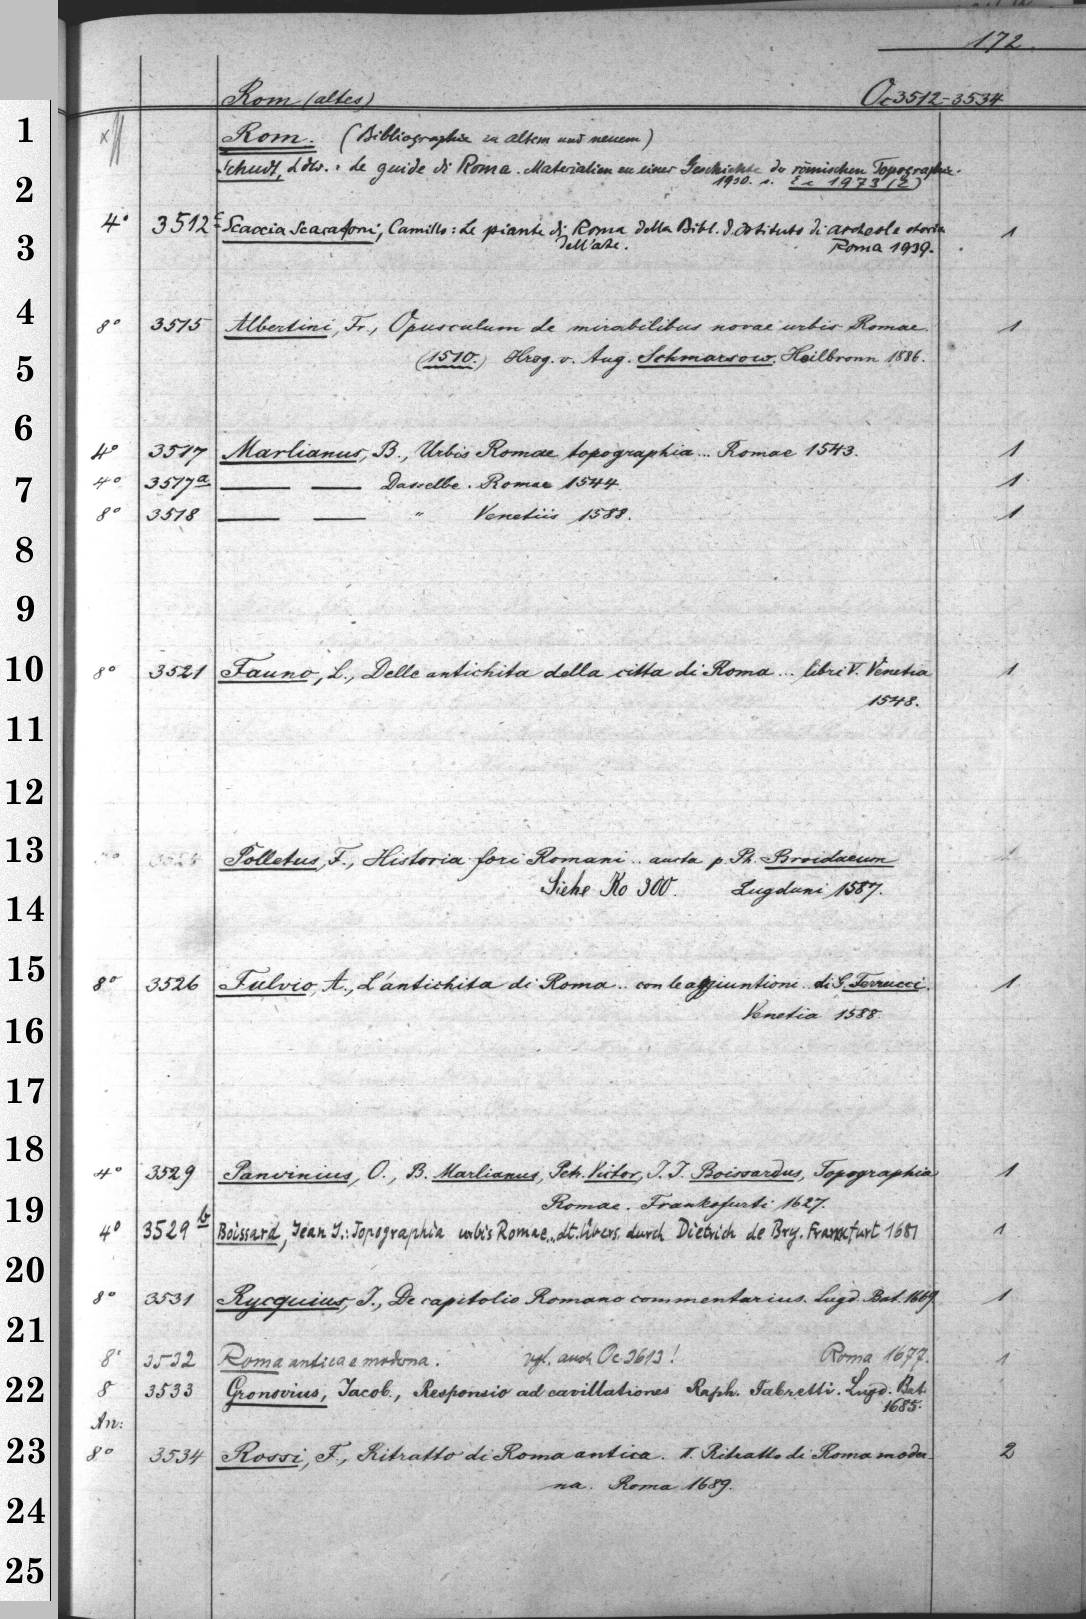 172.
Rom (altes) Oc 3512-3534
1 Rom. (Bibliographie zu altem und neuem)
Schudt, Ldw.: Le guide di Roma. Materialien zu einer Geschichte der römischen Topographie.
2 1930. s. 1973 (2)
4° 3512c Scaccia Scarafoni, Camillo: Le piante di Roma della Bibl. d. Istituto di archeol e storia 1
3 dell'arte. Roma 1939.
4 8° 3515 Albertini, Fr., Opusculum de mirabilibus novae urbis Romae. 1
5 (1510.) Hrsg. v. Aug. Schmarsow. Heilbronn 1886.
6 4° 3517 Marlianus, B., Urbis Romae topographia... Romae 1543. 1
7 4° 3517a — — Dasselbe. Romae 1544. 1
8° 3518 — — " Venetiis 1588. 1
8
9
10 8° 3521 Fauno, L., Delle antichita della citta di Roma ... libri V. Venetia 1
11 1548.
12
13 3524 Polletus, F., Historia fori Romani .. aucta p. Ph. Broidaeum
14 Siehe Ko 300. Lugduni 1587.
15 8° 3526 Fulvio, A., L'antichita di Roma .. con le aggiuntioni di G. Ferrucci. 1
16 Venetia 1588.
17
18 4° 3529 Panvinius, O., B. Marlianus, Petr. Victor, J. J. Boissardus, Topographia 1
19 Romae. Frankofurti 1627.
4° 3529b Boissard, Jean J.: Topographia urbis Romae.. dt. übers. durch Dietrich de Bry. Frankfurt 1681 1
20 8° 3531 Rycquius, J., De capitolio Romano commentarius. Lugd. Bat. 1669 1
21 8° 3532 Roma antica e moderna. vgl. auch Oc 3613! Roma 1677. 1
22 8 3533 Gronovius, Jacob., Responsio ad cavillationes Raph. Fabretti. Lugd. Bat.
An: 1685.
23 8° 3534 Rossi, F., Ritratto di Roma antica. II. Ritratto di Roma moder- 2
24 na. Roma 1689.
25